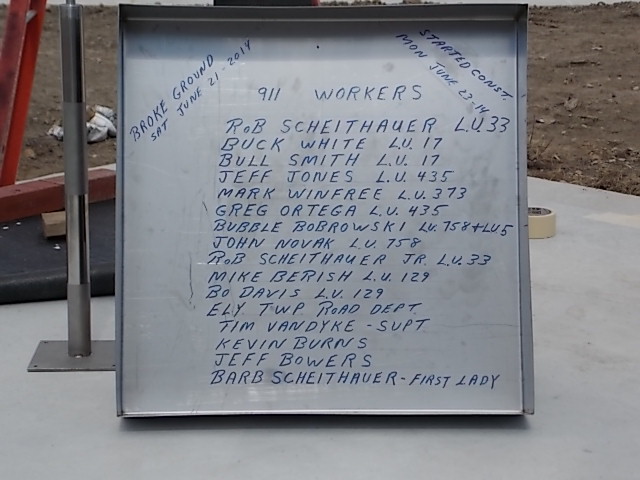 BROKE GROUND
SAT JUNE 21-2014
STARTED CONST.
MON JUNE 23-14
911 WORKERS
ROB SCHEITHAUER L.U.33
BUCK WHITE L.U. 17
BULL SMITH L.U. 17
JEFF JONES L.U. 435
MARK WINFREE L.U. 373
GREG ORTEGA L.U. 435
BUBBLE BOBROWSKI LU. 758+LU5
JOHN NOVAK L.U. 758
ROB SCHEITHAUER JR. L.U. 33
MIKE BERISH L.U. 129
BO DAVIS L.U. 129
ELY TWP ROAD DEPT.
TIM VANDYKE - SUPT
KEVIN BURNS
JEFF BOWERS
BARB SCHEITHAUER - FIRST LADY